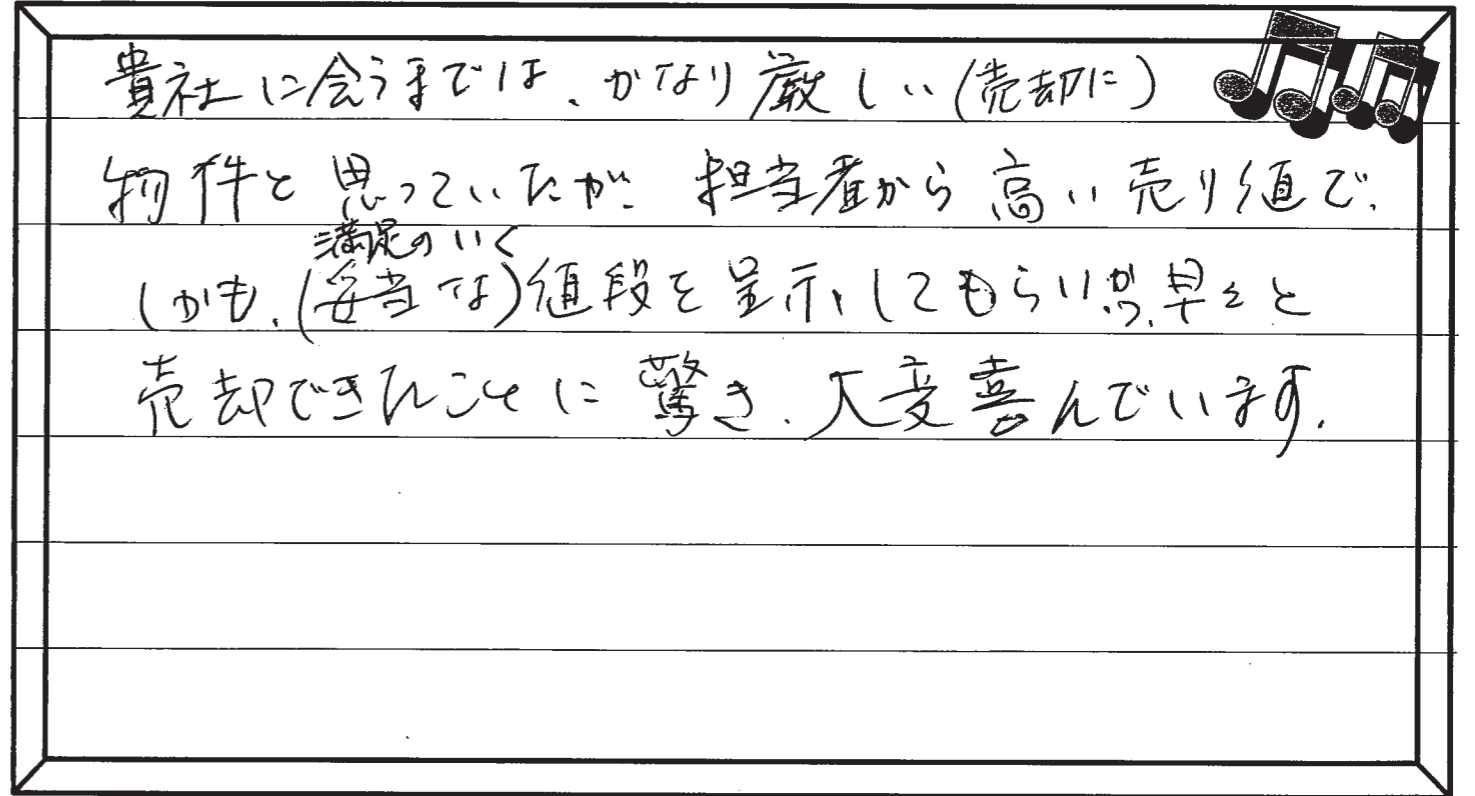 貴社に会うまでは、かなり厳しい(売却に)
物件と思っていたが、担当者から高い売り値で、
満足のいく
しかも、(妥当な)値段を呈示してもらい、かつ、早々と
売却できたことに驚き、大変喜んでいます。